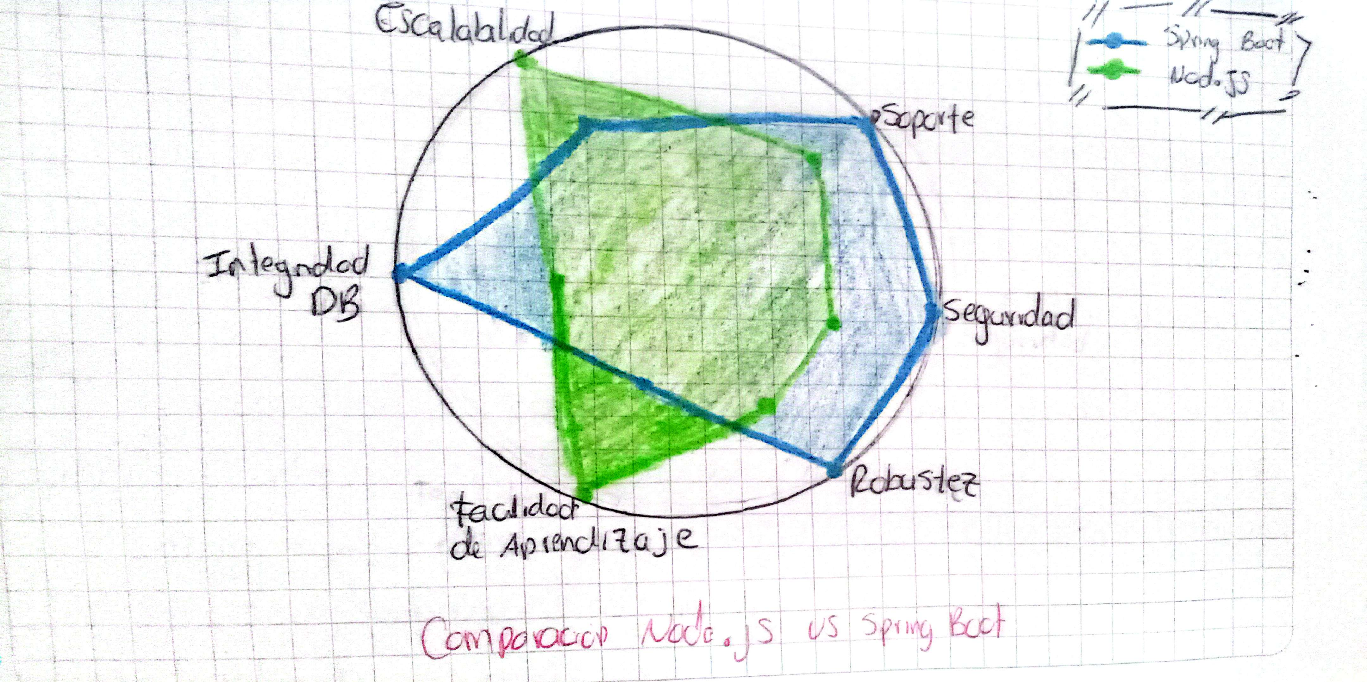 Escalabilidad
Spring Boot
Node.js
Soporte
Integridad
DB
Seguridad
Robustez
Facilidad
de Aprendizaje
Comparacion Node.js vs Spring Boot